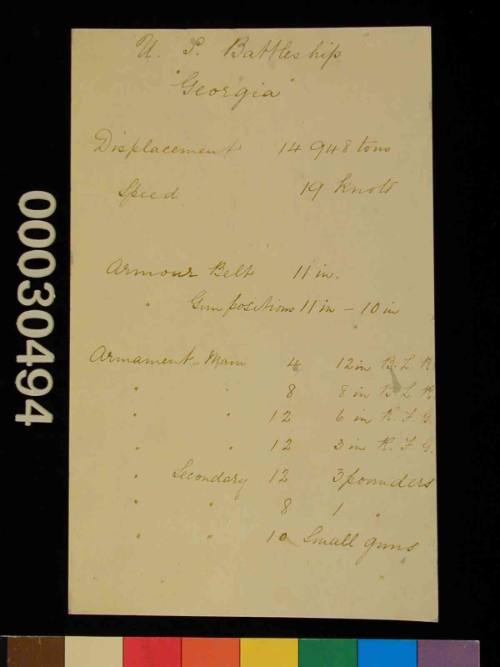 U. S. Battleship
"Georgia"
Displacement 14 948 tons
Speed 19 Knots
Armour Belt 11 in.
" Gun positions 11 in - 10 in
Armament - Main 4 12 in B. L. R.
" " 8 8 in B. L. R.
" " 12 6 in R. F. G.
" " 12 3 in R. F. G.
" Secondary 12 3 pounders
" " 8 1 "
" " 10 Small guns
00030494